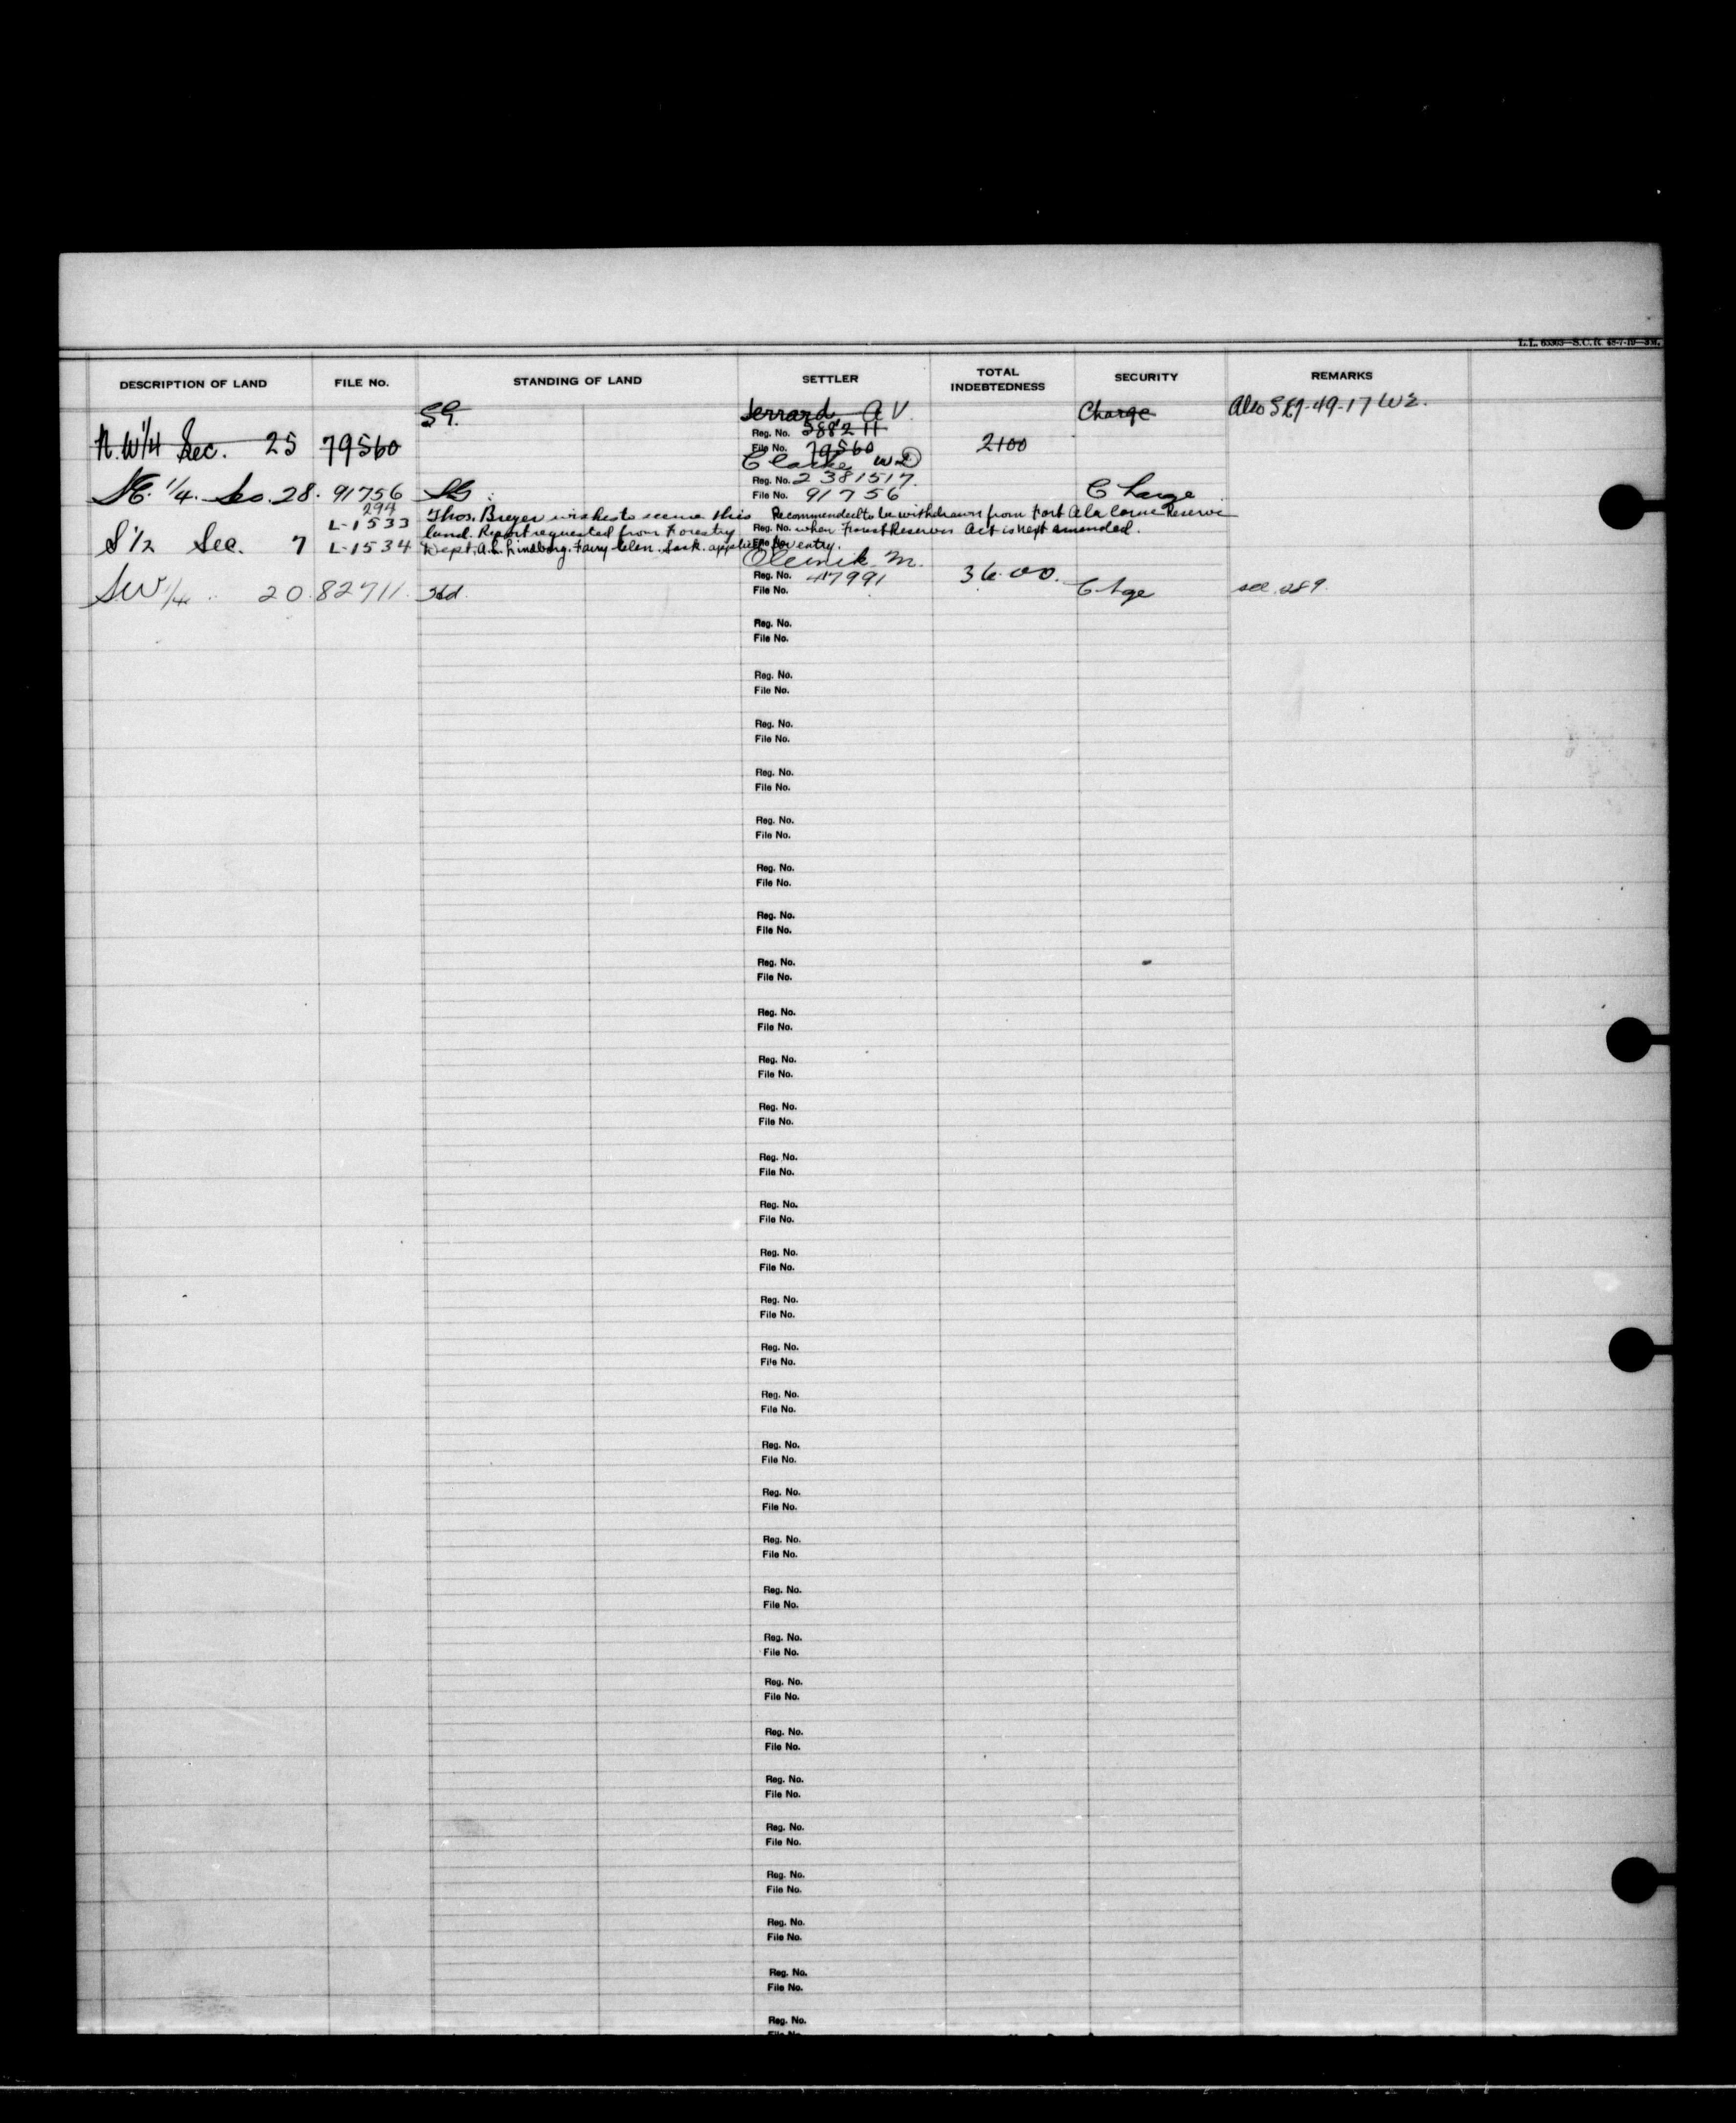 DESCRIPTION OF LAND FILE No. STANDING OF LAND SETTLER TOTAL INDEBTEDNESS SECURITY REMARKS
S.G. Jerrard A V. Charge Also
N.W 1/4 Sec. 25 79560 Reg. No. 58824 2100
File No. 79560
Clarke W
1/4 Sec. 28. 91756 SG Reg. No. 2381517 Charge
File No. 91756
294
L-1533 Thos. Breyer wishes to secure this Recommended to be withdrawn from Fort A la Corne Reserve
land. Report requested from Forestry Reg. No. when Forest Reserves Act is next amended.
S 1/2 Sec. 7 L-1534 Dept. A.L. Lindborg. Fairy Glen. Sask. applied for entry. File No.
Oleinik M.
SW 1/4 20 82711 Reg. No. 47991 3600. Chge see 289
File No.
Reg. No.
File No.
Reg. No.
File No.
Reg. No.
File No.
Reg. No.
File No.
Reg. No.
File No.
Reg. No.
File No.
Reg. No.
File No.
Reg. No.
File No.
Reg. No.
File No.
Reg. No.
File No.
Reg. No.
File No.
Reg. No.
File No.
Reg. No.
File No.
Reg. No.
File No.
Reg. No.
File No.
Reg. No.
File No.
Reg. No.
File No.
Reg. No.
File No.
Reg. No.
File No.
Reg. No.
File No.
Reg. No.
File No.
Reg. No.
File No.
Reg. No.
File No.
Reg. No.
File No.
Reg. No.
File No.
Reg. No.
File No.
Reg. No.
File No.
Reg. No.
File No.
Reg. No.
File No.
Reg. No.